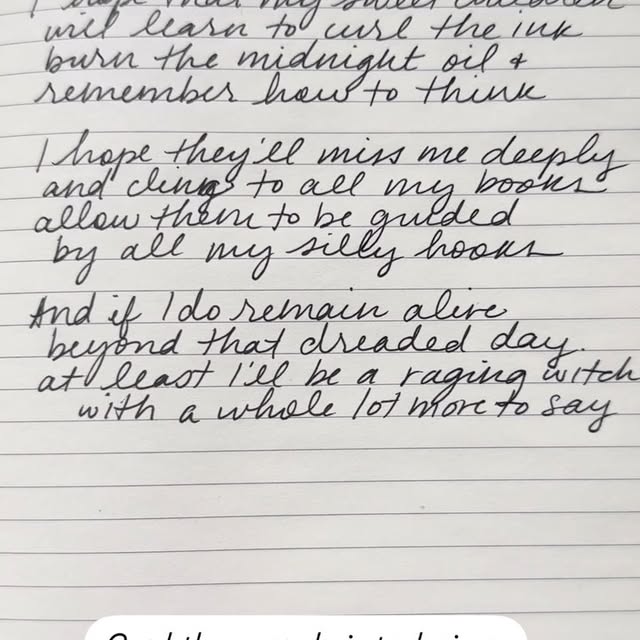 I hope that my sweet children
will learn to curl the ink
burn the midnight oil +
remember how to think
I hope they'll miss me deeply
and clings to all my books
allow them to be guided
by all my silly hooks
And if I do remain alive
beyond that dreaded day.
at least I'll be a raging witch
with a whole lot more to say